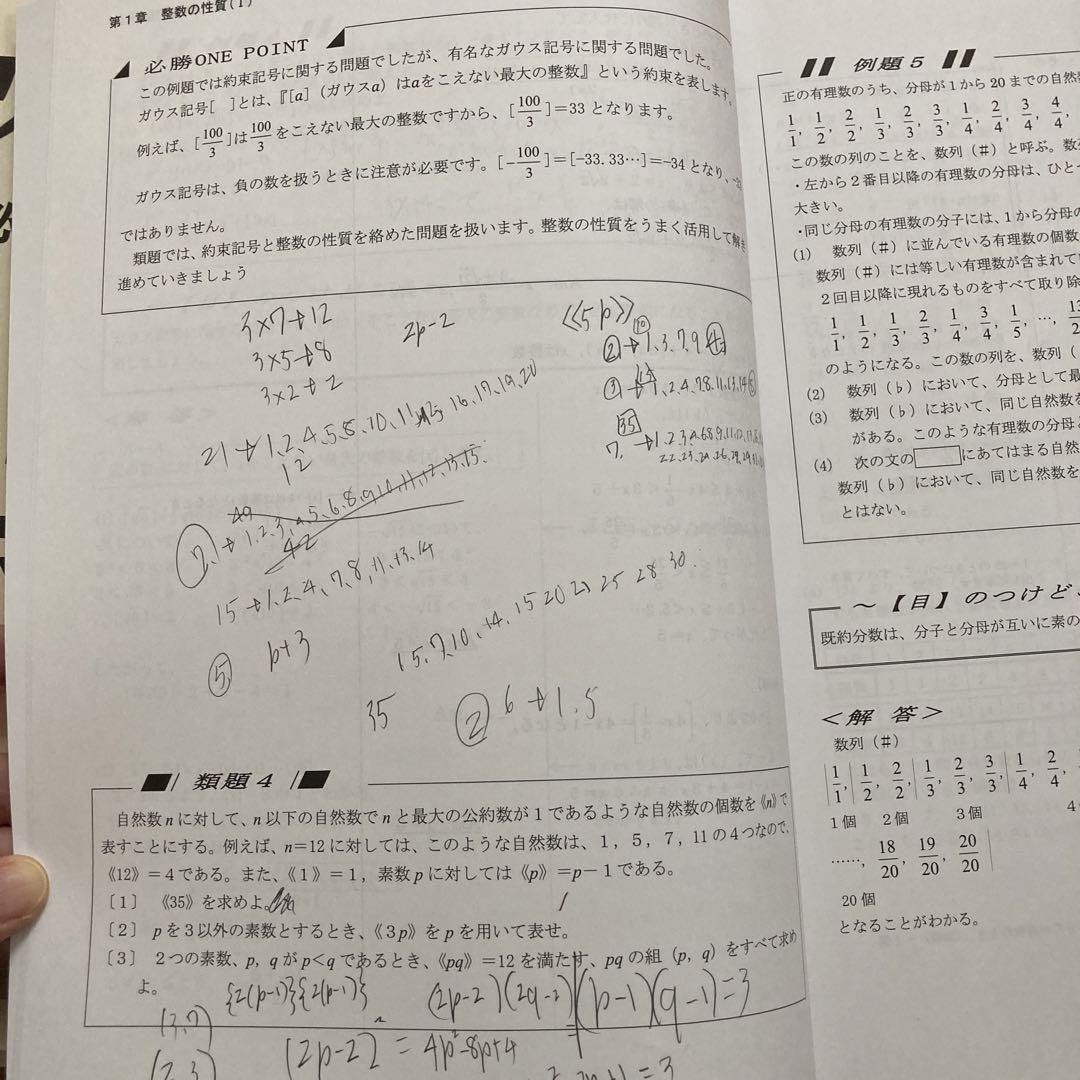 第1章 整数の性質(1)
必勝ONE POINT
この例題では約束記号に関する問題でしたが、有名なガウス記号に関する問題でした。
ガウス記号[ ]とは、『[a](ガウスa)はaをこえない最大の整数』という約束を表します。
例えば、[100/3]は100/3をこえない最大の整数ですから、[100/3]=33 となります。
ガウス記号は、負の数を扱うときに注意が必要です。[-100/3]=[-33.33…]=-34 となり、
ではありません。
類題では、約束記号と整数の性質を絡めた問題を扱います。整数の性質をうまく活用して解き
進めていきましょう
3×7→12
3×5→8
3×2→2
2p-2
《5p》
10
②→1.3.7.9
21→1.2.4.5.8.10.11. 16.17.19.20
12
15→1.2.4.7.8.11.13.14
⑤ p+3
35
② 6→1.5
類題4
自然数nに対して、n以下の自然数でnと最大の公約数が1であるような自然数の個数を《n》で
表すことにする。例えば、n=12に対しては、このような自然数は、1,5,7,11の4つなので、
《12》=4である。また、《1》=1,素数pに対しては《p》=p-1である。
[1] 《35》を求めよ。
[2] pを3以外の素数とするとき、《3p》をpを用いて表せ。
[3] 2つの素数、p,qがp<qであるとき、《pq》=12を満たす、pqの組(p,q)をすべて求め
よ。
{2(p-1)}{2(p-1)}
(2p-2)(2q-2)
(p-1)(q-1)=3
(3,7)
(2p-2)² = 4p²-8p+4
例題5
正の有理数のうち、分母が1から20までの自然数
1/1, 1/2, 2/2, 1/3, 2/3, 3/3, 1/4, 2/4, 3/4, 4/4,
この数の列のことを、数列(#)と呼ぶ。数
・左から2番目以降の有理数の分母は、ひと
大きい。
・同じ分母の有理数の分子には、1から分母の
(1) 数列(#)に並んでいる有理数の個数
数列(#)には等しい有理数が含まれて
2回目以降に現れるものをすべて取り除
1/1, 1/2, 1/3, 2/3, 1/4, 3/4, 1/5, …,
のようになる。この数の列を、数列(
(2) 数列(b)において、分母として最
(3) 数列(b)において、同じ自然数を
がある。このような有理数の分母と
(4) 次の文の にあてはまる自然
数列(b)において、同じ自然数を
とはない。
~【目】のつけど
既約分数は、分子と分母が互いに素の
<解 答>
数列(#)
|1/1|1/2, 2/2,|1/3, 2/3, 3/3,|1/4, 2/4,
1個 2個 3個 4
……, 18/20, 19/20, 20/20|
20個
となることがわかる。